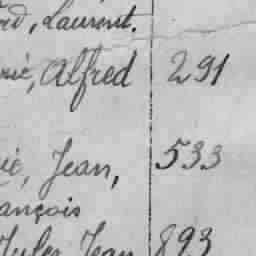 Laurent.
Alfred 291
Jean, 533
ançois
Jules Jean 893